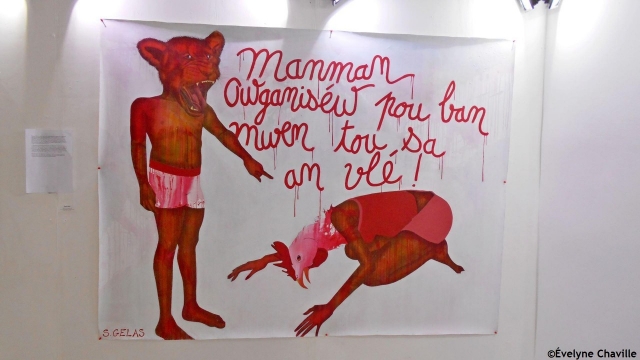 Manman
Owganiséw pou ban
mwen tou sa
an vlé !
S. GELAS
©Évelyne Chaville